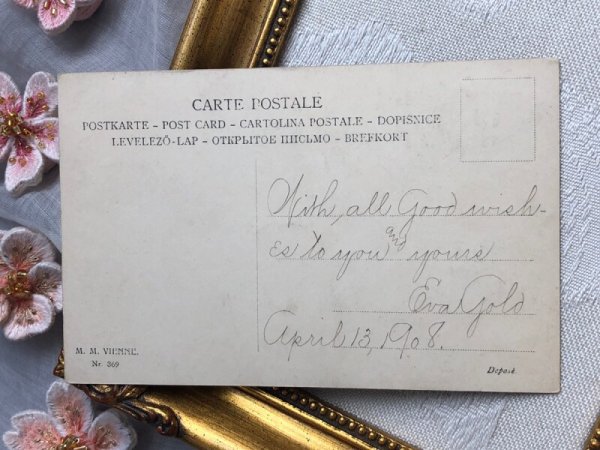 CARTE POSTALE
POSTKARTE – POST CARD – CARTOLINA POSTALE – DOPISNICE
LEVELEZŐ-LAP – ОТКРЫТОЕ ПИСЬМО – BREFKORT
With, all Good wish-
es to you and yours
Eva Gold
April 13, 1908.
M. M. VIENNE.
Nr. 369
Deposé.